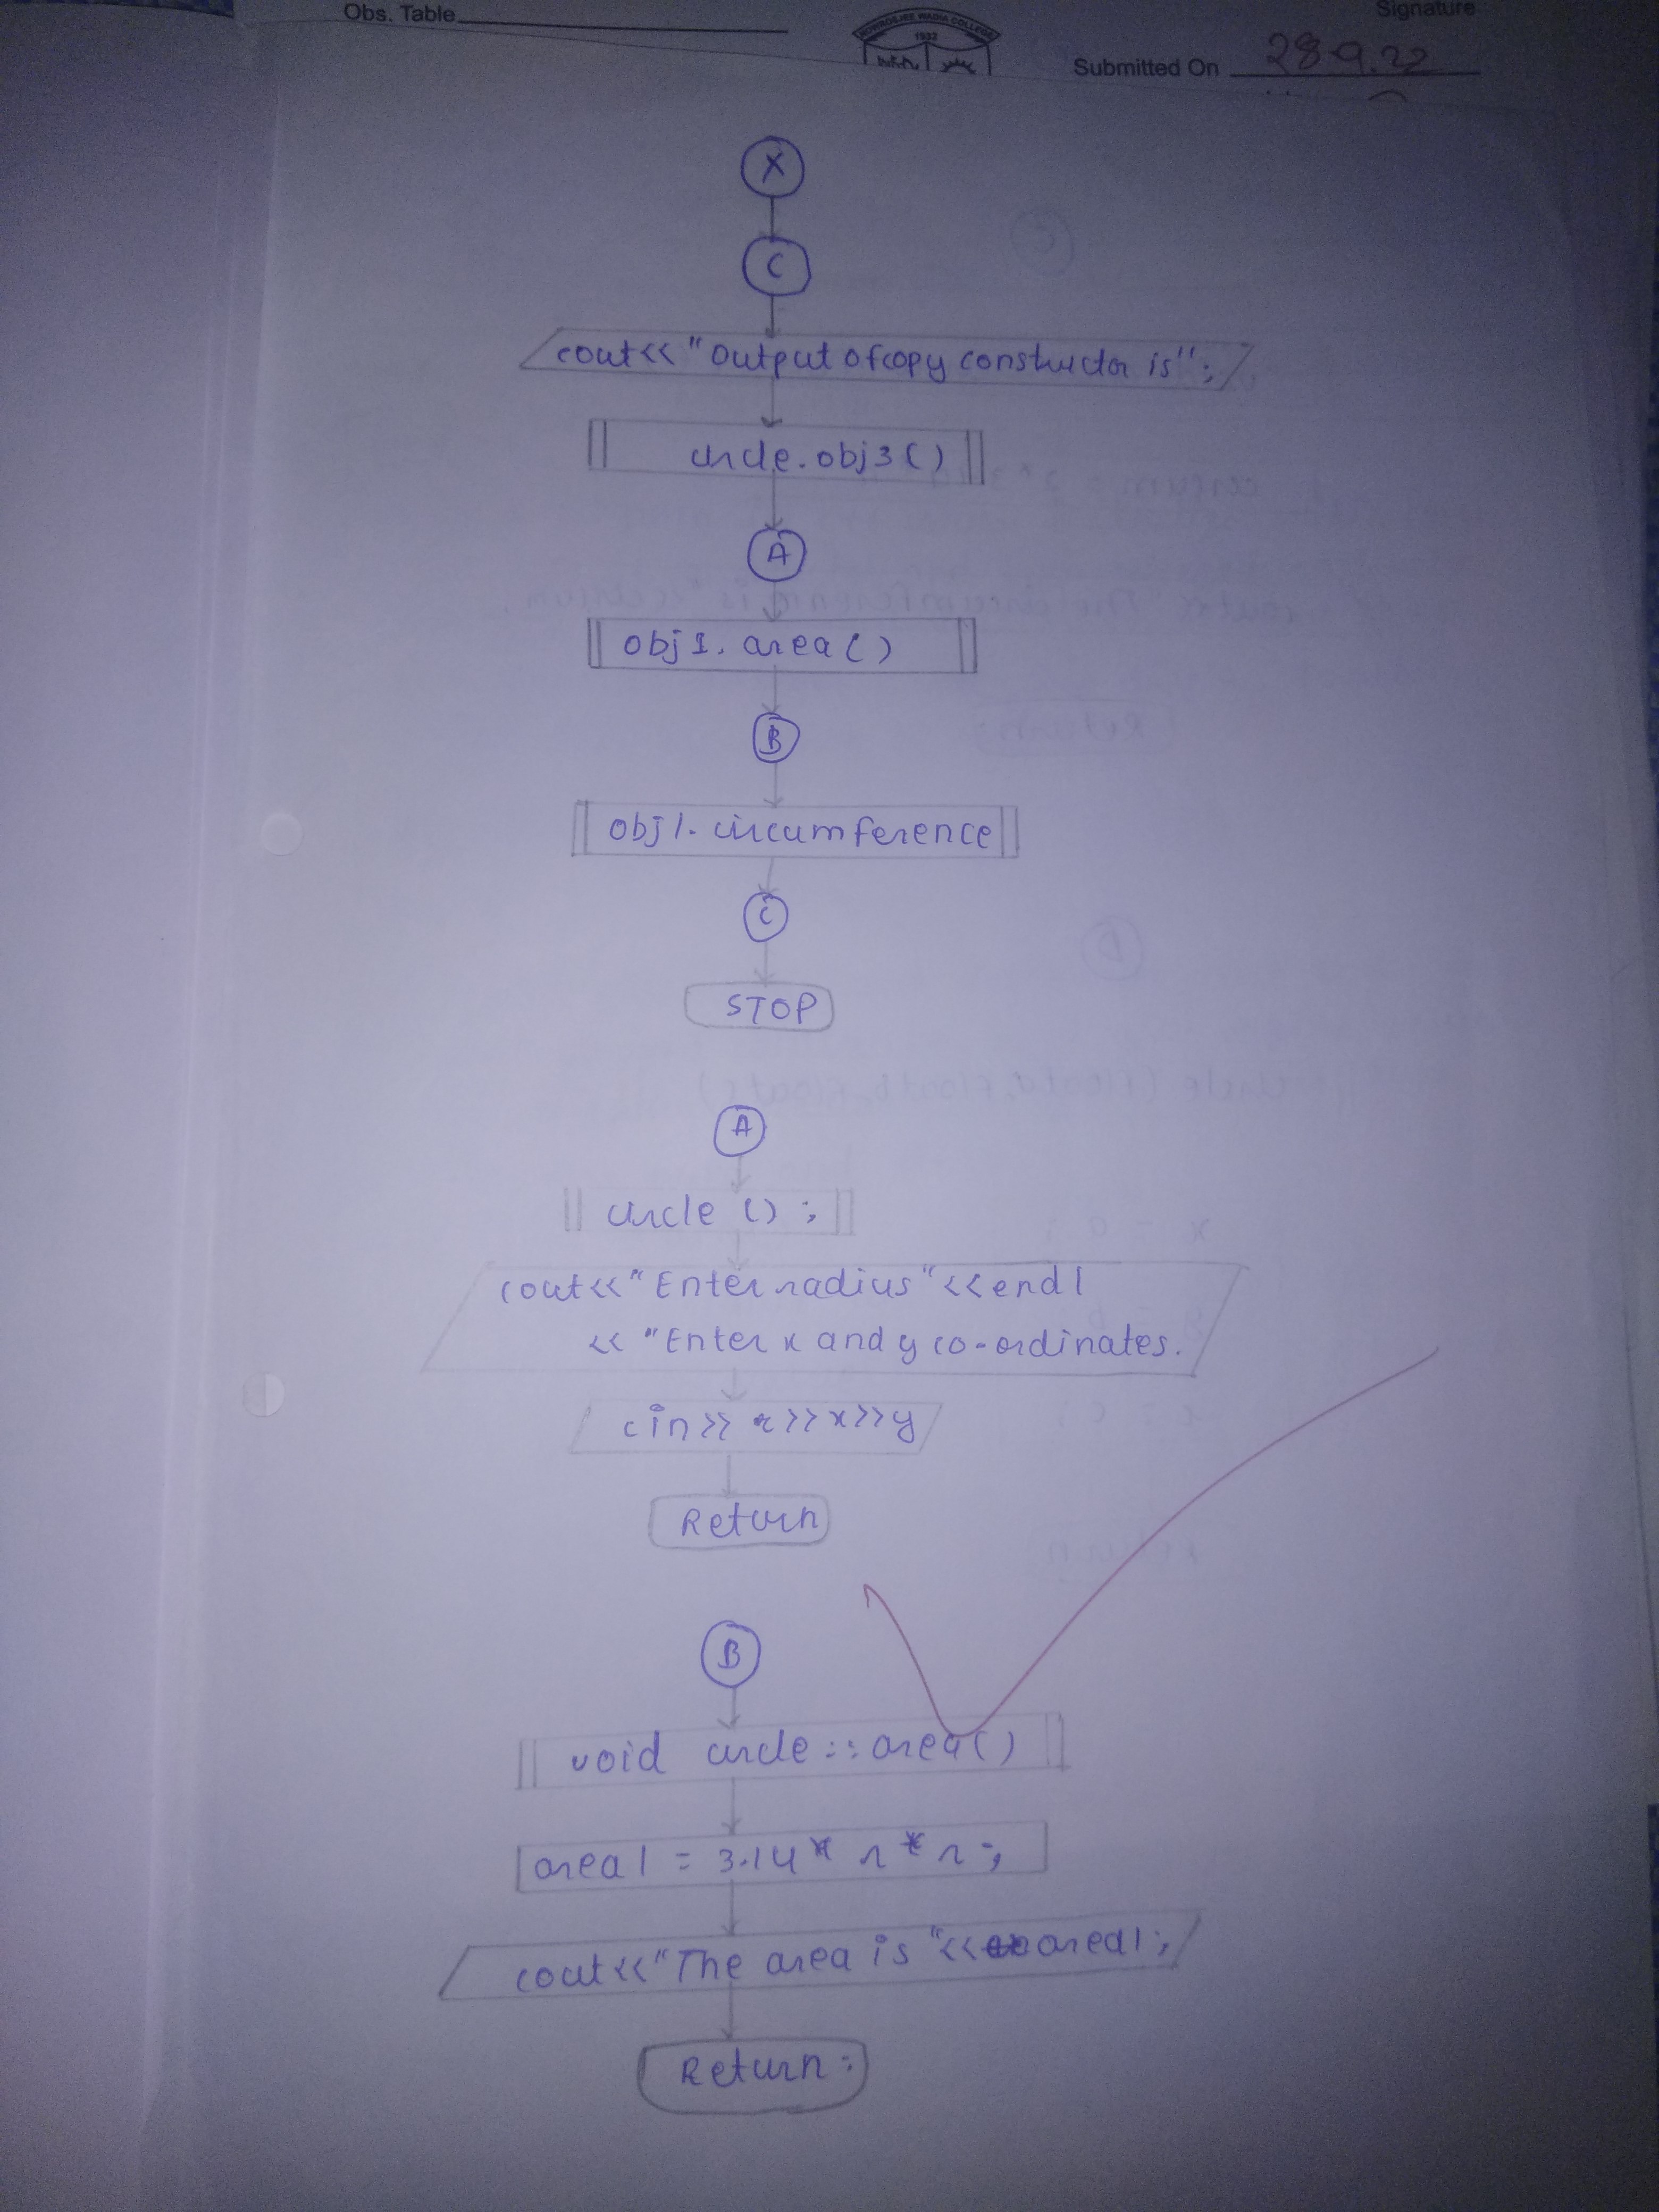 Obs. Table
NOWROSJEE WADIA COLLEGE
1932
Signature
Submitted On 28.9.22
X
C
cout<< "Output of copy constructor is";
circle.obj3()
A
obj1.area()
B
obj1.circumference
C
STOP
A
circle ();
cout<<"Enter radius"<<endl
<< "Enter x and y co-ordinates.
cin>> r>>x>>y
Return
B
void circle::area()
area1 = 3.14* r*r;
cout<<"The area is "<<area1;
Return: